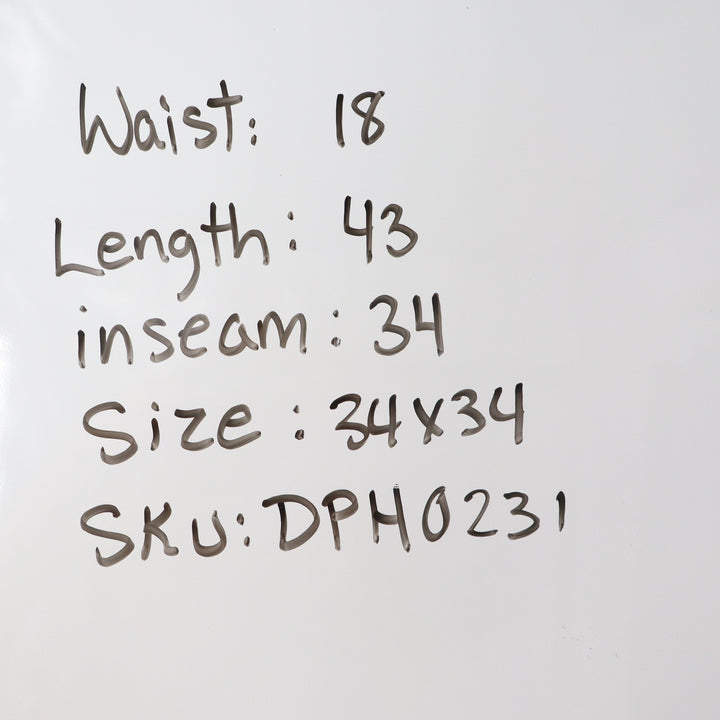 Waist: 18
Length: 43
inseam: 34
Size: 34x34
SKU: DPH0231